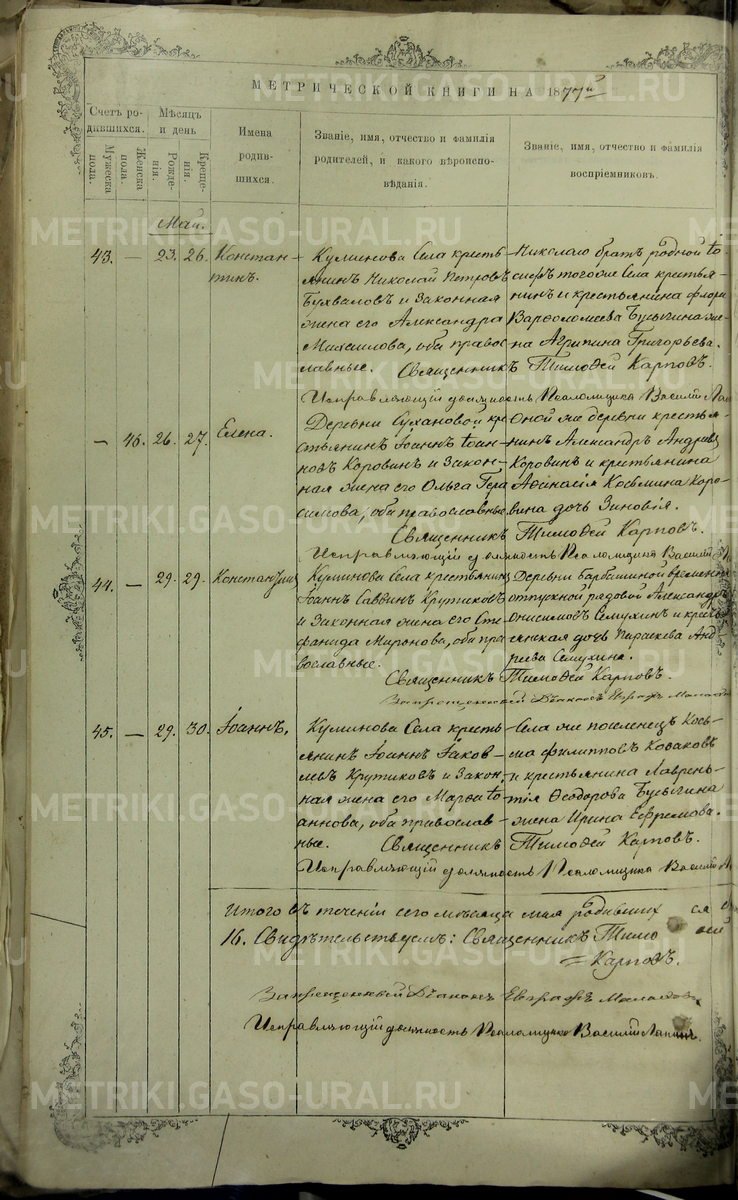 МЕТРИЧЕСКОЙ КНИГИ НА 1877й
Счетъ родившихся.
Мужеска пола.
Женска пола.
Мѣсяцъ и день
Рожденія.
Крещенія.
Имена родившихся.
Званіе, имя, отчество и фамилія родителей, и какого вѣроисповѣданія.
Званіе, имя, отчество и фамилія воспріемниковъ.
Май.
43. — 23. 26. Констан-
тинъ.
Куминова Села кресть-
янинъ Николай Петровъ
Бухваловъ и Законная
жена его Александра
Михаилова, оба правос-
лавные.
Николаю братъ родной Іо-
сифъ тогоже Села крестья-
нинъ и крестьянина Флора
Варѳоломеева Бусыгина же-
на Агрипина Григорьева.
Священникъ Тимоѳей Карповъ.
Исправляющій должность Псаломщика Василій
— 46. 26. 27. Елена.
Деревни Сухановой кре-
стьянинъ Іоаннъ Іоан-
новъ Коровинъ и Закон-
ная жена его Ольга Гера-
симова, оба православные
Оной же деревни крестья-
нинъ Александръ Андреевъ
Коровинъ и крестьянина
Аѳанасія Косьмина Коро-
вина дочь Зиновія.
Священникъ Тимоѳей Карповъ.
Исправляющій должность Псаломщика Василій
44. — 29. 29. Константи
Куминова Села крестьянинъ
Іоаннъ Саввинъ Крутиковъ
и Законная жена его Сте-
фанида Миронова, оба пра-
вославные.
Деревни Барбашиной временно
отпускной рядовой Александръ
Онисимовъ Семухинъ и кресть-
янская дочь Параскева Анд-
реева Семухина.
Священникъ Тимоѳей Карповъ.
Запрещенный Діаконъ Евграфъ
45. — 29. 30. Іоаннъ.
Куминова Села кресть-
янинъ Іоаннъ Іаков-
левъ Крутиковъ и Закон-
ная жена его Марѳа Іо-
аннова, оба православ-
ные.
Села же поселенецъ Кось-
ма Филипповъ Козаковъ
и крестьянина Лаврень-
тія Ѳеодорова Бусыгина
жена Ирина Ефремова.
Священникъ Тимоѳей Карповъ.
Исправляющій должность Псаломщика Василій
Итого въ теченіи сего мѣсяца мая родившихся
16. Свидѣтельствуемъ: Священникъ Тимоѳей
Карповъ.
Запрещенный Діаконъ Евграфъ
Исправляющій должность Псаломщика Василій Лапинъ.
METRIKI.GASO-URAL.RU